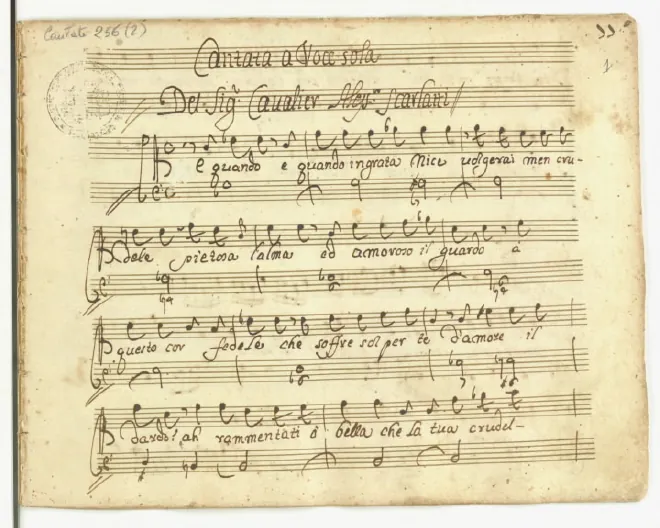 Cantate 256 (2)
1
Cantata a Voce sola
Del Sig.r Cavalier Aless.o Scarlatti
E quando e quando ingrata Nice volgerai men cru-
dele pietosa l'alma ed amoroso il guardo à
questo cor fedele che soffre sol per te d'amore il
dardo? ah rammentati ò bella che la tua crudel-